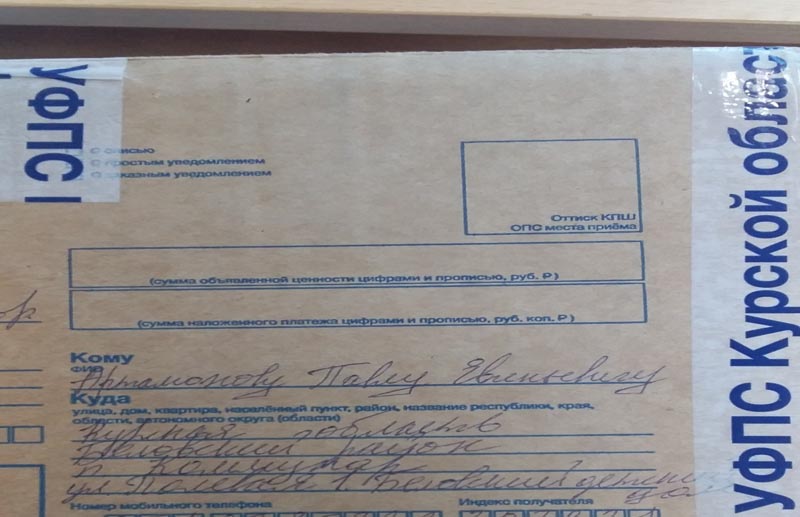 УФПС
С описью
С простым уведомлением
С заказным уведомлением
Оттиск КПШ
ОПС места приёма
(сумма объявленной ценности цифрами и прописью, руб. ₽)
(сумма наложенного платежа цифрами и прописью, руб. коп. ₽)
Кому
ФИО
Артамонову Павлу
Куда
улица, дом, квартира, населённый пункт, район, название республики, края,
области, автономного округа (области)
Курская область
Беловский район
п Коммунар
ул Полевая 1 Беловский
Номер мобильного телефона
Индекс получателя
УФПС Курской област